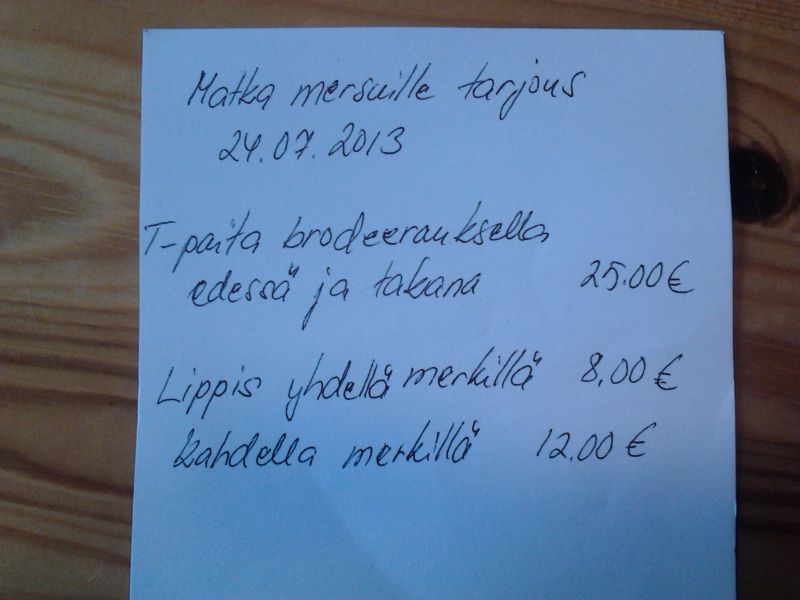 Matka mersuille tarjous
24.07.2013
T-paita brodeerauksella
edessä ja takana 25.00 €
Lippis yhdellä merkillä 8.00 €
kahdella merkillä 12.00 €